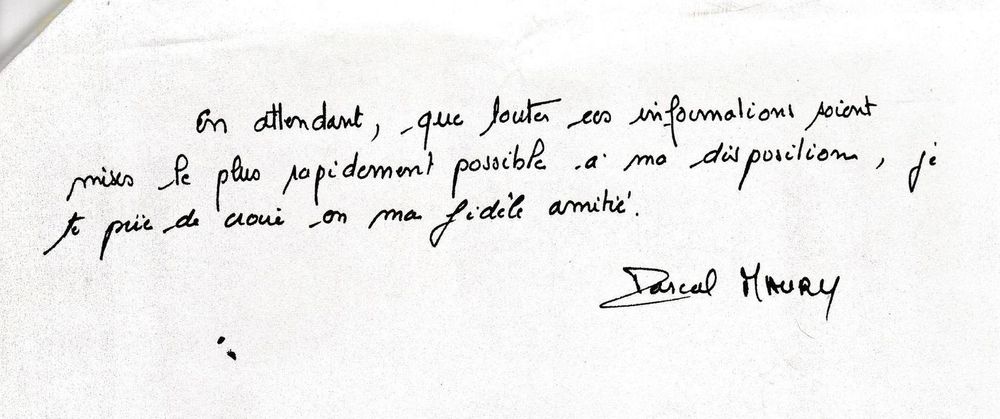 En attendant, que toutes ces informations soient
mises le plus rapidement possible à ma disposition, je
te prie de croire en ma fidèle amitié.
Pascal MAURY